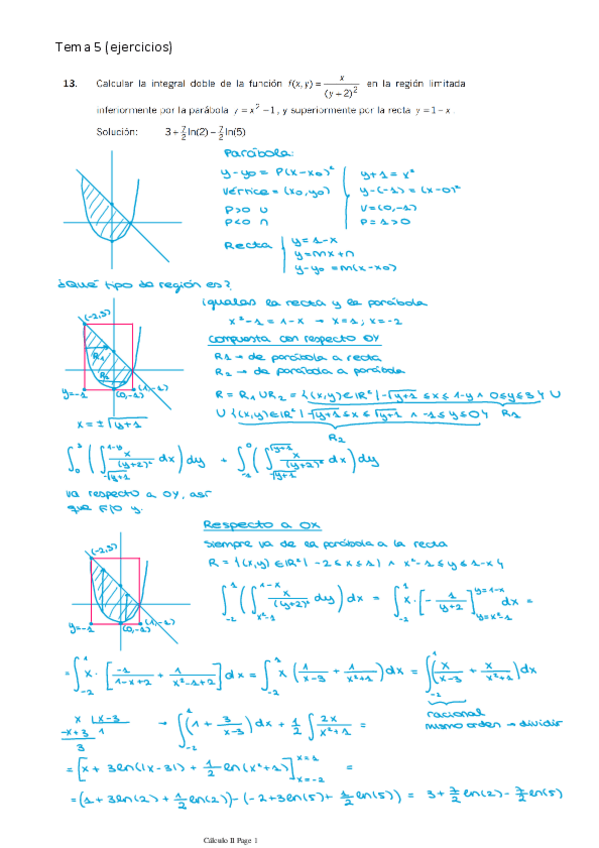 Tema 5 (ejercicios)
13. Calcular la integral doble de la función f(x,y) = x/(y+2)² en la región limitada
inferiormente por la parábola y = x² − 1, y superiormente por la recta y = 1 − x.
Solución: 3 + 7/2 ln(2) − 7/2 ln(5)
Parábola:
y-y₀ = P(x-x₀)²
y+1 = x²
Vértice = (x₀,y₀)
y-(-1) = (x-0)²
P>0 ∪
V=(0,-1)
P<0 ∩
P=1>0
Recta
y = 1-x
y=mx+n
y-y₀ = m(x-x₀)
¿Qué tipo de región es?
igualas la recta y la parábola
x²-1 = 1-x → x=1; x=-2
Compuesta con respecto OY
R1 → de parábola a recta
R2 → de parábola a parábola
(-2,3)
R1
R2
y=-1
(0,-1)
(1,-1)
x = ±√(y+1)
R = R1 ∪ R2 = {(x,y) ∈ ℝ² | -√(y+1) ≤ x ≤ 1-y ∧ 0≤y≤3} ∪
∪ {(x,y) ∈ ℝ² | -√(y+1) ≤ x ≤ √(y+1) ∧ -1≤y≤0} R2
∫₀³ (∫_{-√(y+1)}^{1-y} x/(y+2)² dx) dy + ∫₋₁⁰ (∫_{-√(y+1)}^{√(y+1)} x/(y+2)² dx) dy
va respecto a OY, así
que fijo y.
Respecto a OX
siempre va de la parábola a la recta
R = {(x,y) ∈ ℝ² | -2≤x≤1 ∧ x²-1≤y≤1-x}
(-2,3)
y=-1
(0,-1)
(1,-1)
∫₋₂¹ (∫_{x²-1}^{1-x} x/(y+2)² dy) dx = ∫₋₂¹ x·[-1/(y+2)]_{y=x²-1}^{y=1-x} dx =
= ∫₋₂¹ x·[-1/(1-x+2) + 1/(x²-1+2)] dx = ∫₋₂¹ x (1/(x-3) + 1/(x²+1)) dx = ∫₋₂¹ (x/(x-3) + x/(x²+1)) dx
racional
mismo orden → dividir
x |x-3
-x+3 1
3
→ ∫₋₂¹ (1 + 3/(x-3)) dx + 1/2 ∫ 2x/(x²+1) =
= [x + 3ln(|x-3|) + 1/2 ln(x²+1)]_{x=-2}^{x=1} =
= (1 + 3ln(2) + 1/2 ln(2)) - (-2+3ln(5) + 1/2 ln(5)) = 3 + 7/2 ln(2) - 7/2 ln(5)
Cálculo II Page 1